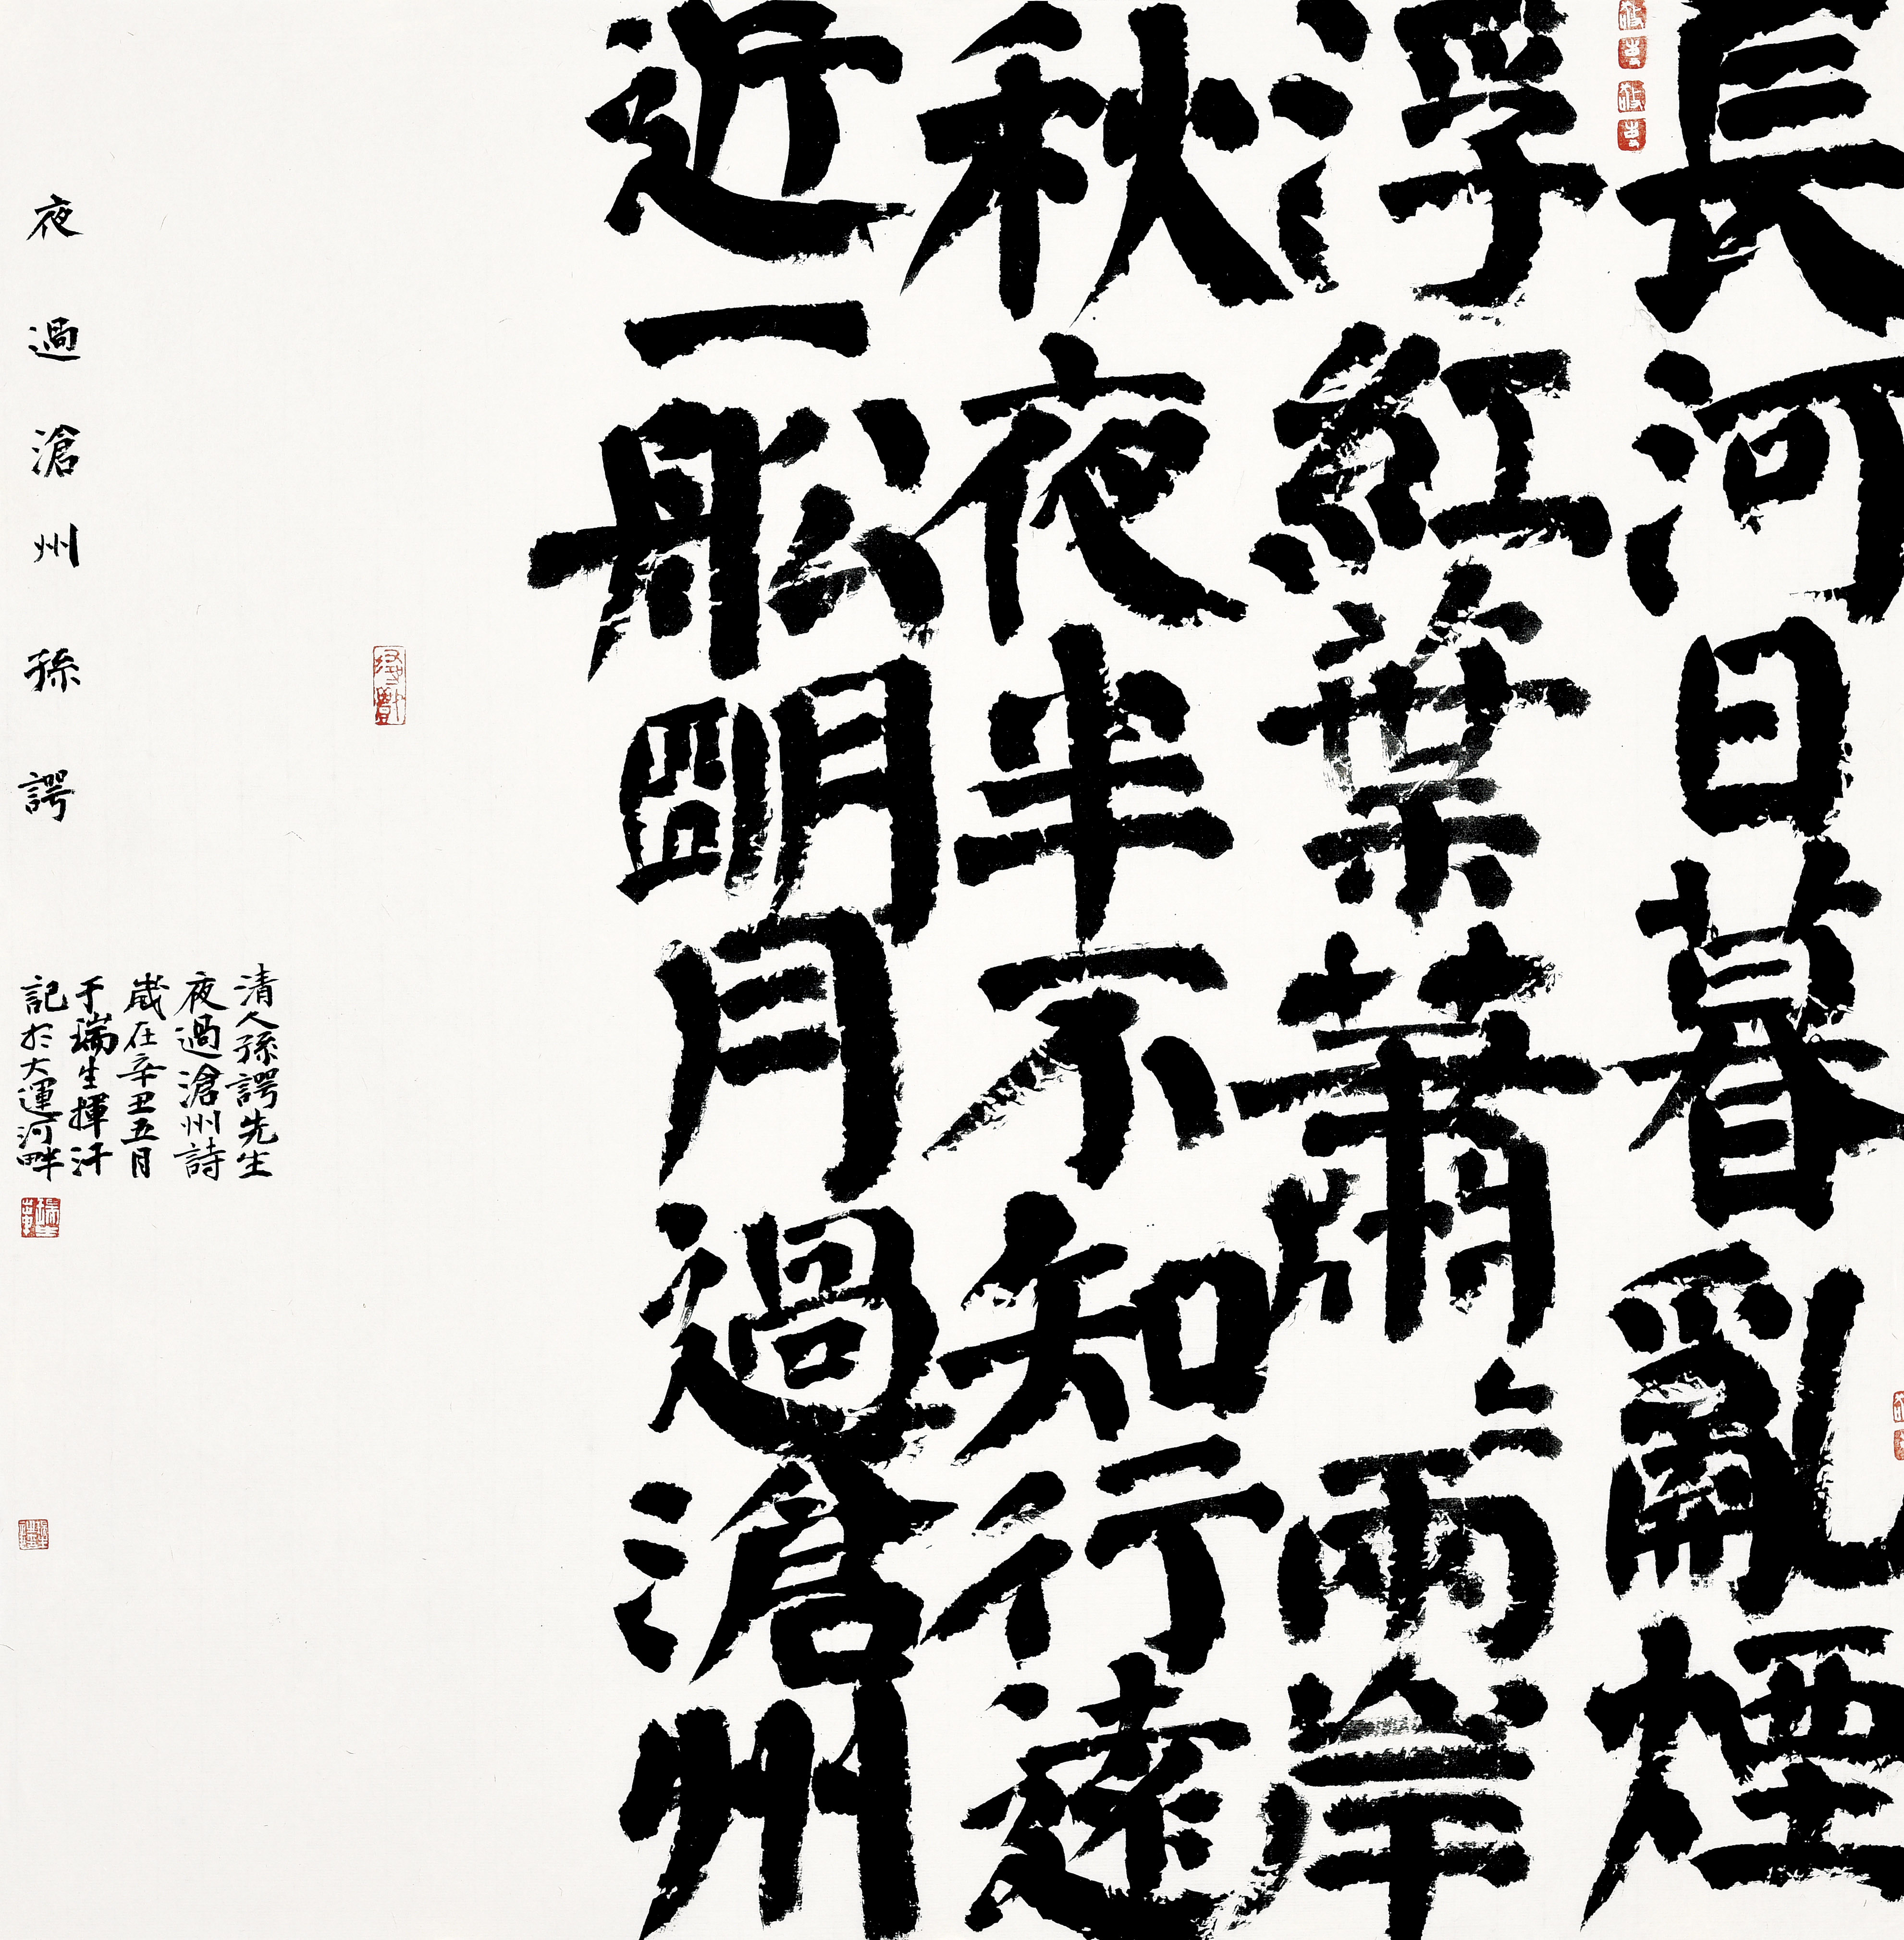 長河日暮亂煙
浮紅葉蕭蕭兩岸
秋夜半不知行遠
近一船明月過滄州
夜過滄州 孫諤
清人孫諤先生
夜過滄州詩
歲在辛丑五月
于瑞生揮汗
記於大運河畔